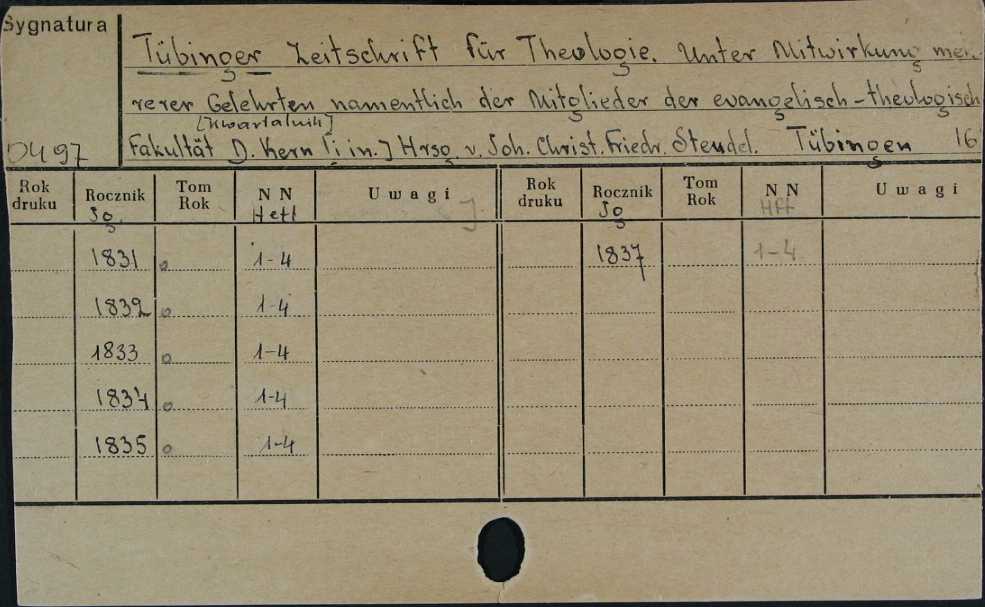 Sygnatura
Tübinger Zeitschrift für Theologie. Unter Mitwirkung meh-
rerer Gelehrten namentlich der Mitglieder der evangelisch-theologisch
[Kwartalnik]
Fakultät D. Kern [i in.] Hrsg v. Joh. Christ. Friedr. Steudel. Tübingen 16
DU 97
Rok druku Rocznik Tom Rok NN Uwagi Rok druku Rocznik Tom Rok NN Uwagi
Jg. Heft Jg Hft
1831 1-4 1837 1-4
1832 1-4
1833 1-4
1834 1-4
1835 1-4